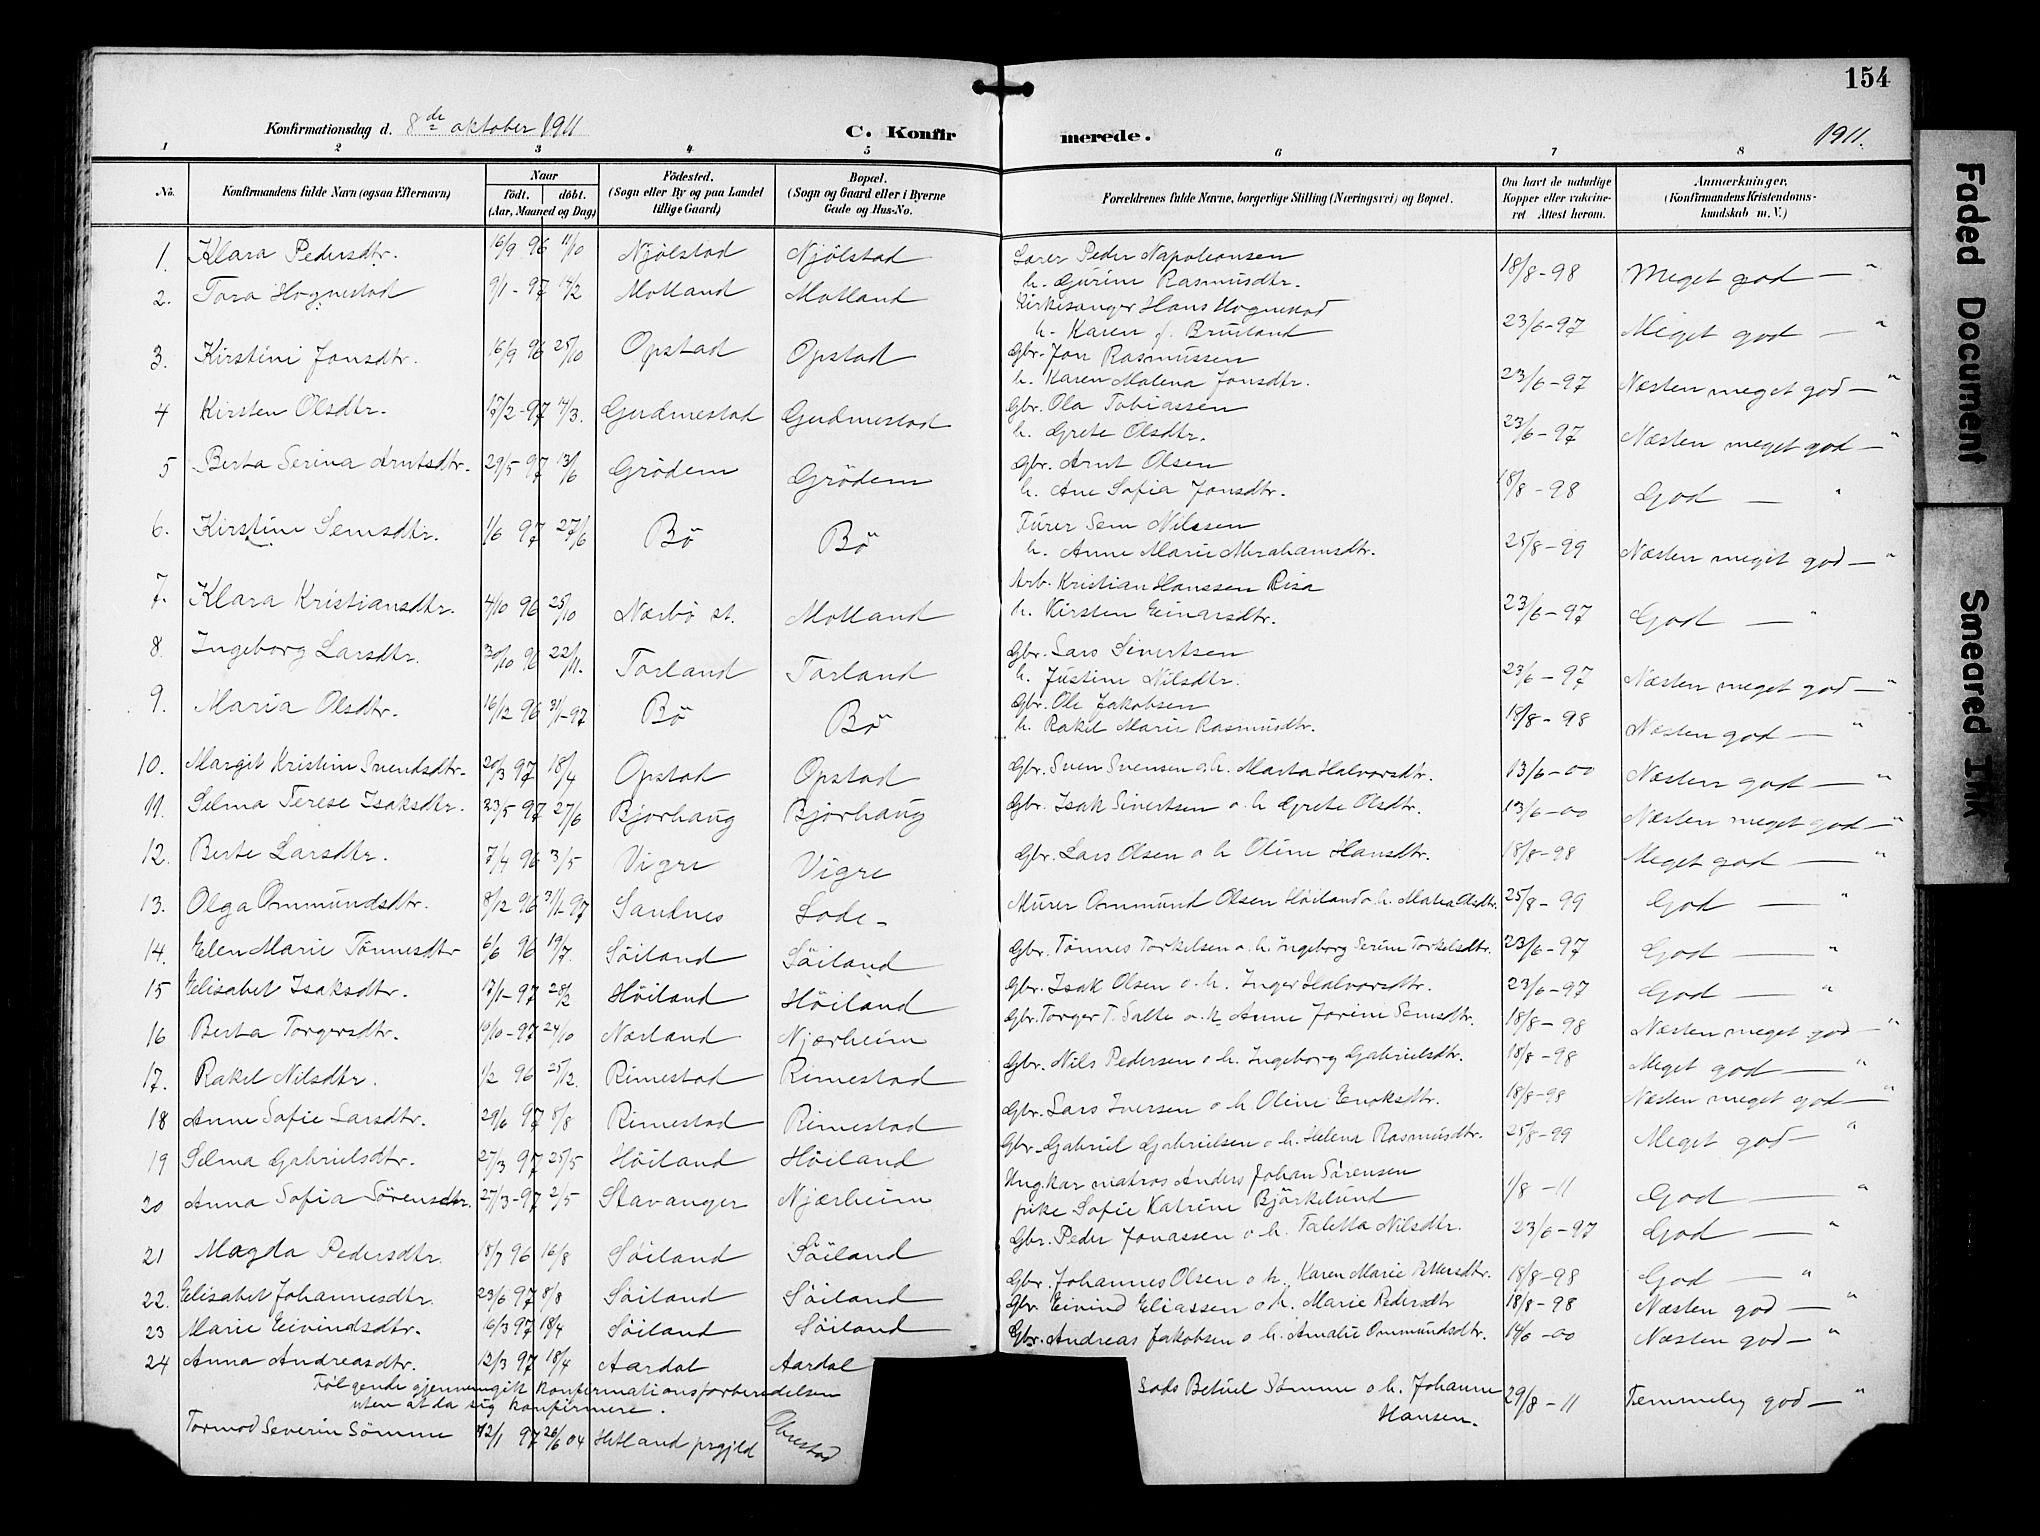 154
Konfirmationsdag d. 8de oktober 1911
C. Konfirmerede.
1911.
1 2 3 4 5 6 7 8
No. Konfirmandens fulde Navn (ogsaa Efternavn) Naar født. døbt. (Aar, Maaned og Dag) Fødested. (Sogn eller By og paa Landet tillige Gaard) Bopæl. (Sogn og Gaard eller i Byerne Gade og Hus-No. Forældrenes fulde Navne, borgerlige Stilling (Næringsvei) og Bopæl. Om havt de naturlige Kopper eller vaccineret Attest herom. Anmærkninger. (Konfirmandens Kristendomskundskab m. V.)
1. Klara Pedersdtr. 16/9 96 11/10 Njølstad Njølstad Lærer Peder Napoleonsen h. Gurine Rasmusdtr. 18/8-98 Meget god — "
2. Tora Hognestad 9/1-97 14/2 Motland Motland Kirkesanger Hans Hognestad h. Karen f. Bruland 23/6-97 Meget god — "
3. Kirstine Jonsdtr. 16/9 96 25/10 Opstad Opstad Gbr. Jon Rasmussen h. Karen Malena Jonsdtr. 23/6-97 Næsten meget god — "
4 Kirsten Olsdtr. 17/2-97 14/3. Gudmestad Gudmestad Gbr. Ola Tobiassen h. Grete Olsdtr. 23/6-97 Næsten meget god — "
5 Berta Serina Arntsdtr. 29/5 97 13/6 Grödem Grödem Gbr. Arnt Olsen h. Ane Sofia Jonsdtr. 18/8-98 God — "
6. Kirstine Semsdtr. 1/6 97 27/6 Bö Bö Furer Sem Nilssen h. Anne Marie Abrahamsdtr. 25/8-99 Næsten meget god — "
7. Klara Kristiansdtr. 4/10 96 25/10 Nærbö st. Motland Arb. Kristian Hanssen Risa h. Kirsten Einarsdtr. 23/6-97 God — "
8. Ingeborg Larsdtr. 30/10 96 22/11. Torland Torland Gbr. Lars Sivertsen h. Justine Nilsdtr. 23/6-97 Næsten meget god — "
9. Maria Olsdtr. 16/12 96 31/1-97 Bö Bö Gbr. Ole Jakobsen h. Rakel Marie Rasmusdtr. 18/8-98 Næsten god — "
10. Margit Kristine Svendsdtr. 20/3 97 18/4 Opstad Opstad Gbr. Sven Svensen o.h. Marta Halvorsdtr. 13/6-00 Næsten god — "
11. Selma Terese Isaksdtr. 23/5 97 27/6 Bjorhaug Bjorhaug Gbr. Isak Sivertsen o h Grete Olsdtr. 13/6-00 Næsten meget god — "
12. Berte Larsdtr. 7/4 96 3/5 Vigre Vigre Gbr. Lars Olsen o h Oline Hansdtr. 18/8-98 Meget god — "
13. Olga Ommundsdtr. 8/12 96 31/1-97 Sandnes Lode- Murer Ommund Olsen Höiland o h. Malea Olsdtr. 25/8-99 God — "
14. Elen Marie Tönnesdtr 6/6 96 19/7. Söiland Söiland Gbr. Tönnes Torkelsen o. h. Ingeborg Serine Torkelsdtr. 23/6-97 God — "
15 Elisabet Isaksdtr. 17/1-97 28/2 Höiland Höiland Gbr. Isak Olsen o.h. Inger Halvorsdtr. 23/6-97 God — "
16 Berta Torgersdtr. 10/10-97 24/10 Nærland Njærheim Gbr. Torger T. Salte o. h Anne Jorine Semsdtr. 18/8-98 Næsten meget god — "
17. Rakel Nilsdtr. 1/2 96 25/2. Rimestad Rimestad Gbr. Nils Pedersen o h. Ingeborg Gabrielsdtr. 18/8-98 Meget god — "
18 Anne Sofie Larsdtr. 29/6 97 8/8 Rimestad Rimestad Gbr. Lars Iversen o h Oline Enoksdtr. 18/8-98 Næsten meget god — "
19 Selma Gabrielsdtr. 27/3 97 25/5 Höiland Höiland Gbr. Gabriel Gabrielsen o h. Helena Rasmusdtr. 25/8-99 Meget god — "
20 Anna Sofia Sörensdtr. 27/3-97 2/5 Stavanger Njærheim Ungkar matros Anders Johan Sörensen pike Sofie Katrine Björkelund 1/8-11 God — "
21 Magda Pedersdtr. 18/7 96 16/8 Söiland Söiland Gbr. Peder Jonassen o h. Taletta Nilsdtr. 23/6-97 God — "
22. Elisabet Johannesdtr. 23/6 97 8/8 Söiland Söiland Gbr. Johannes Olsen o h. Karen Marie Pettersdtr. 18/8-98 God — "
23 Marie Eivindsdtr. 16/3 97 18/4 Söiland Söiland Gbr Eivind Eliassen o h. Marie Pedersdtr 18/8-98 Næsten god — "
24 Anna Andreasdtr. 12/3 97 18/4 Aardal Aardal Gbr. Andreas Jakobsen o h. Amalie Ommundsdtr. 14/6-00 Næsten god — "
Følgende gjennemgik konfirmationsforberedelsen
uten at la sig konfirmere.
Tormod Severin Sömme 12/1 97 26/6 04 Hetland prgjld Obrestad Lods Betuel Sömme o h. Johanne Hansen. 29/8-11 Temmelig god — "
Faded Document
Smeared Ink